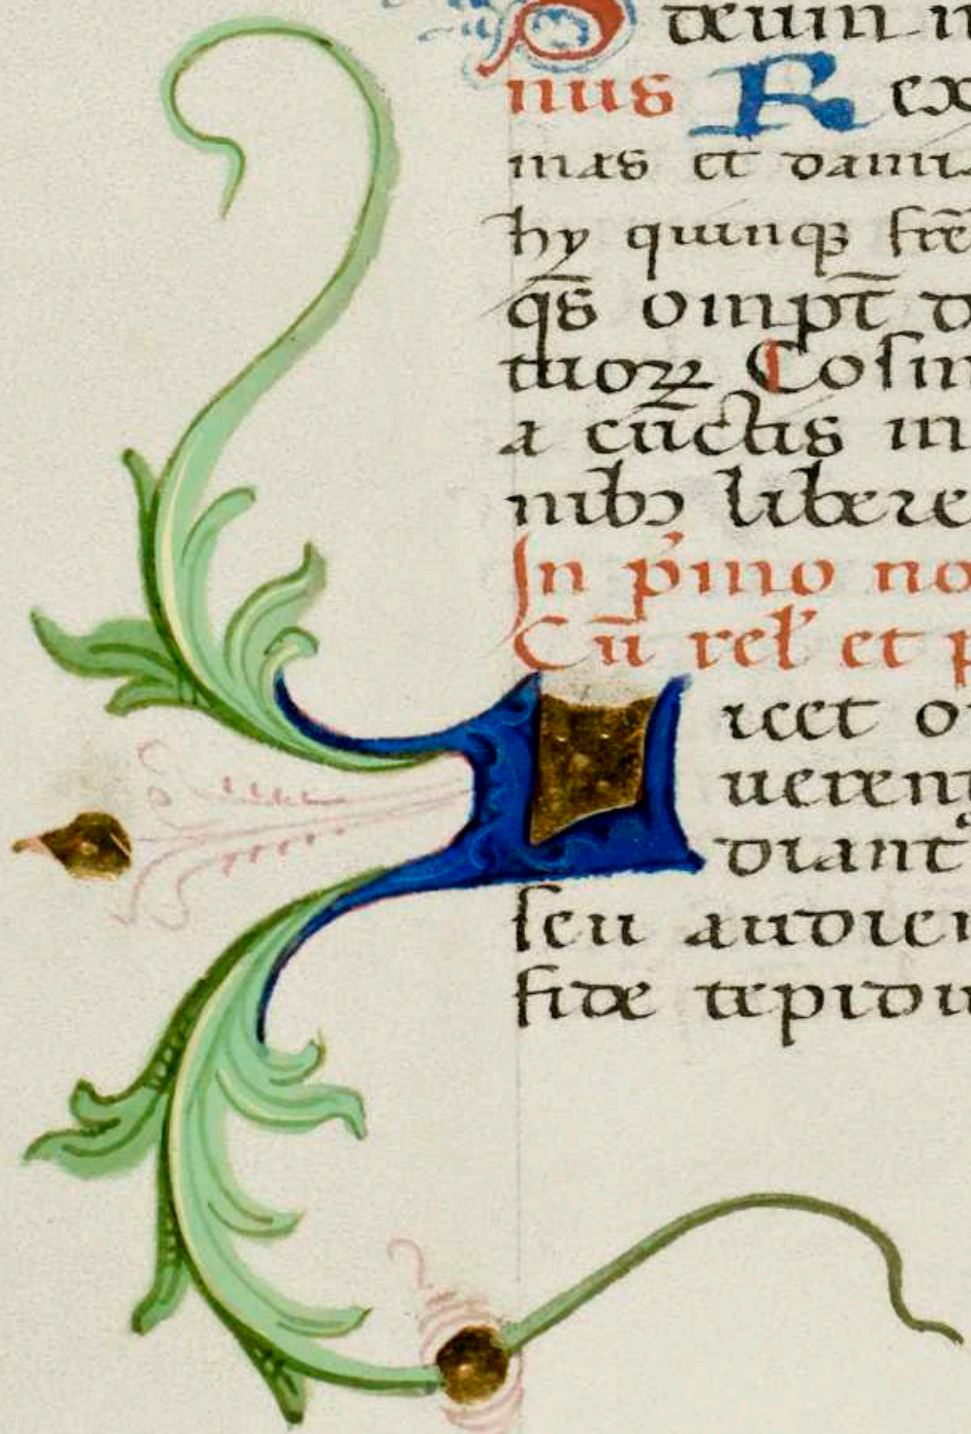 nus R ex
mas et dami
hy quinqꝫ frē
qs̄ omp̄t d
tuoꝝ Cosm
a cūctis in
nibꝰ libere
In pͥmo no
Cū rel' et p
Licet o
uerent
diant
seu audien
fide tepidu